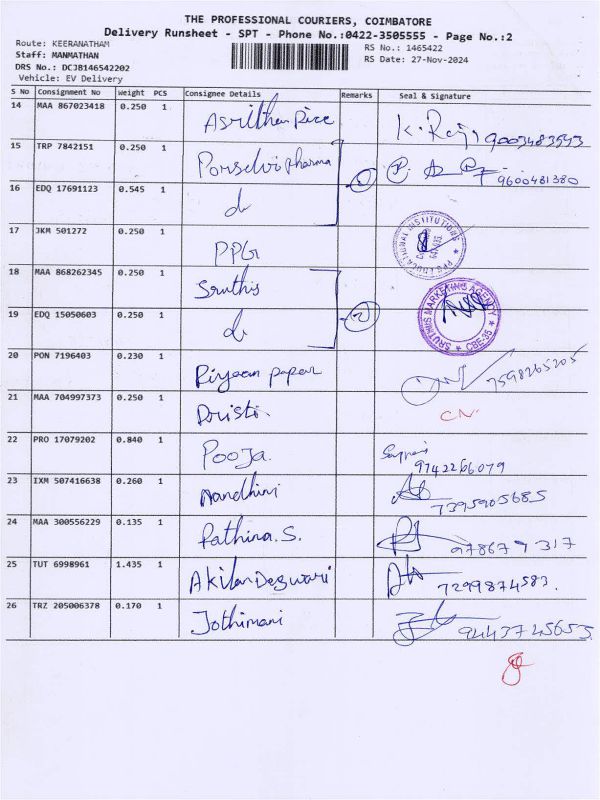 THE PROFESSIONAL COURIERS, COIMBATORE
Delivery Runsheet - SPT - Phone No.:0422-3505555 - Page No.:2
Route: KEERANATHAM
Staff: MANMATHAN
DRS No.: DCJB146542202
Vehicle: EV Delivery
RS No.: 1465422
RS Date: 27-Nov-2024
S No Consignment No Weight PCS Consignee Details Remarks Seal & Signature
14 MAA 867023418 0.250 1 K. Raj 9003483543
15 TRP 7842151 0.250 1 Porselvi pharma 9600481380
16 EDQ 17691123 0.545 1 do
17 JKM 501272 0.250 1 PPG PPG EDUCATIONAL INSTITUTIONS
18 MAA 868262345 0.250 1 Sruthis
19 EDQ 15050603 0.250 1 do 2 SRUTHIS MARKETING AGENCY CBE-35
20 PON 7196403 0.230 1 Riyaan paper 7598265205
21 MAA 704997373 0.250 1 Dristi. CN.
22 PRO 17079202 0.840 1 Pooja. 9742266079
23 IXM 507416638 0.260 1 Nandhini 7395905685
24 MAA 300556229 0.135 1 Pathina.S. 978679317
25 TUT 6998961 1.435 1 Akilandeswari 7299874583.
26 TRZ 205006378 0.170 1 Jothimani 9443745653